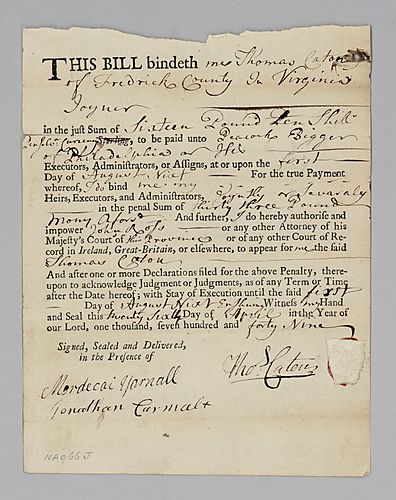 THIS BILL bindeth me Thomas Caton
of Fredrick County In Virginia
Joyner
in the just Sum of Sixteen Pound Ten Shills
Pensylva Curency, to be paid unto Peacock Bigger
of Philadelphia or His
Executors, Administrators, or Assigns, at or upon the first
Day of August Next For the true Payment
whereof, I do bind me my
Heirs, Executors, and Administrators, firmly
in the penal Sum of thirty three Pound
mony Aforsd And further, I do hereby authorise and
impower John Ross or any other Attorney of his
Majesty's Court of this Province or of any other Court of Re-
cord in Ireland, Great-Britain, or elsewhere, to appear for me the said
Thomas Caton
And after one or more Declarations filed for the above Penalty, there-
upon to acknowledge Judgment or Judgments, as of any Term or Time
after the Date hereof; with Stay of Execution until the said first
Day of August Next Ensuing Witness my Hand
and Seal this twenty Sixth Day of April in the Year of
our Lord, one thousand, seven hundred and forty Nine
Signed, Sealed and Delivered,
in the Presence of
Thos Caton
Mordecai Yarnall
Jonathan Carmalt
NA966J